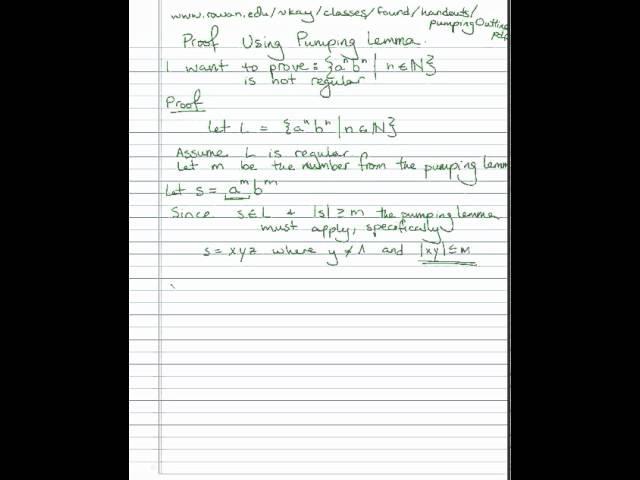 www.rowan.edu/~kay/classes/found/handouts/
pumpingOutline
pdf
Proof Using Pumping Lemma.
I want to prove: {aⁿbⁿ | n ∈ ℕ}
is not regular
Proof
Let L = {aⁿbⁿ | n ∈ ℕ}
Assume L is regular.
Let m be the number from the pumping lemm
Let s = aᵐbᵐ
Since s ∈ L + |s| ≥ m the pumping lemma
must apply, specifically
s = xyz where y ≠ Λ and |xy| ≤ m